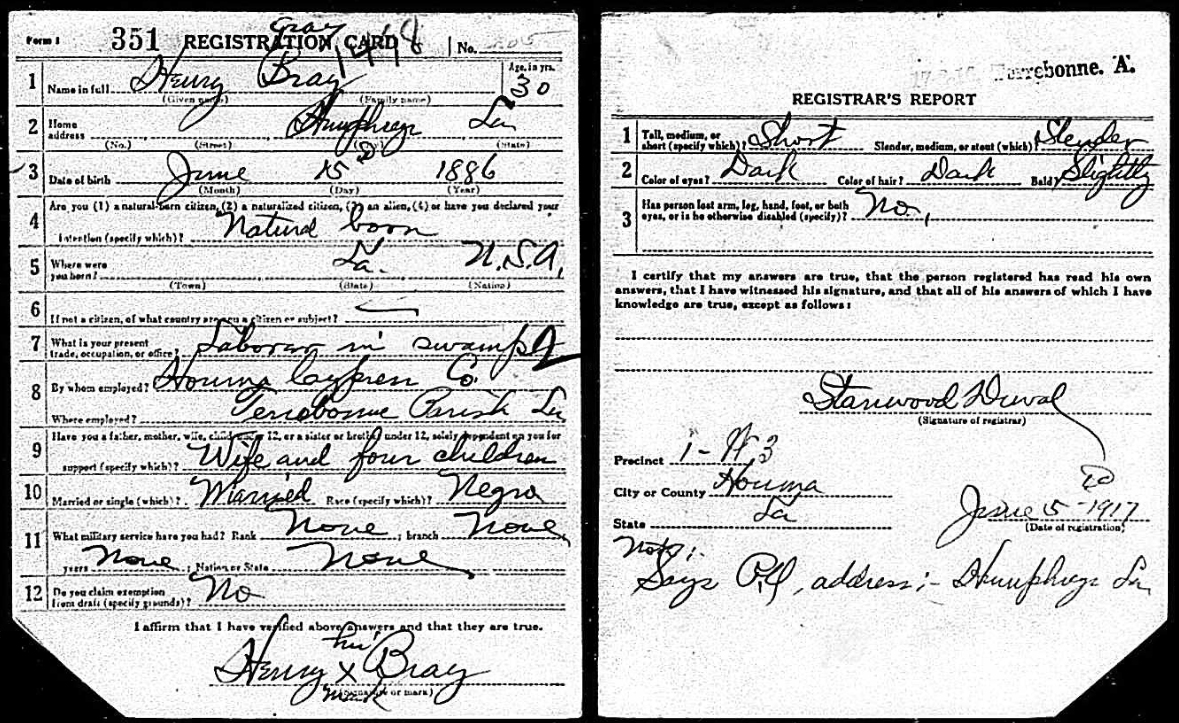 Gray
Form 1 351 REGISTRATION CARD No.
1 Name in full Henry Bray Age, in yrs. 30
(Given name) (Family name)
2 Home address Humphreys La
(No.) (Street) (State)
3 Date of birth June 15 1886
(Month) (Day) (Year)
4 Are you (1) a natural-born citizen, (2) a naturalized citizen, (3) an alien, (4) or have you declared your
intention (specify which)? Natural born
5 Where were you born? La. U.S.A,
(Town) (State) (Nation)
6 If not a citizen, of what country are you a citizen or subject?
7 What is your present trade, occupation, or office? Laborer in swamp
8 By whom employed? Houma Cypress Co.
Where employed? Terrebonne Parish La
9 Have you a father, mother, wife, child under 12, or a sister or brother under 12, solely dependent on you for
support (specify which)? Wife and four children
10 Married or single (which)? Married Race (specify which)? Negro
11 What military service have you had? Rank None ; branch None
years None ; Nation or State None
12 Do you claim exemption from draft (specify grounds)? No
I affirm that I have verified above answers and that they are true.
his
Henry X Bray
(Signature or mark)
mark
Terrebonne. A.
REGISTRAR'S REPORT
1 Tall, medium, or short (specify which)? Short Slender, medium, or stout (which)? Slender
2 Color of eyes? Dark Color of hair? Dark Bald? Slightly
3 Has person lost arm, leg, hand, foot, or both eyes, or is he otherwise disabled (specify)? No,
I certify that my answers are true, that the person registered has read his own
answers, that I have witnessed his signature, and that all of his answers of which I have
knowledge are true, except as follows:
Stanwood Duval
(Signature of registrar)
Precinct 1-W.3
City or County Houma
State La
June 5-1917
(Date of registration)
Note:-
Says P.O, address:- Humphreys La